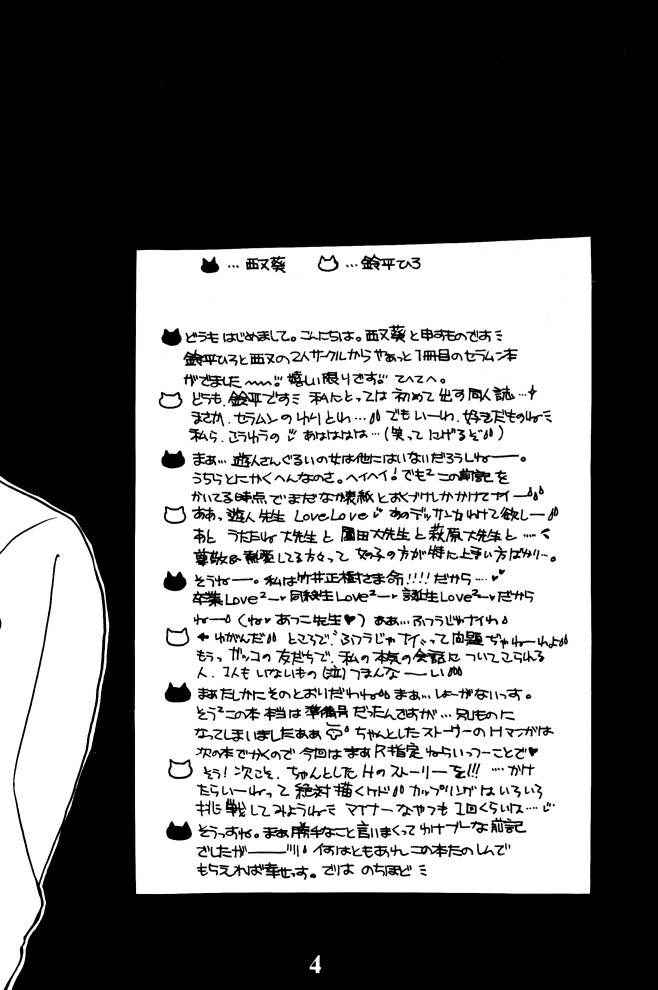 …西又葵　…鈴平ひろ
どうも はじめまして。こんにちは。西又葵と申すものですミ
鈴平ひろと西又の2人サークルからやぁっと1冊目のセラムン本
がでました〜〜!! 嬉しい限りです!! てへてへ。
どうも、鈴平ですミ 私にとっては 初めて出す同人誌…
まさか、セラムンの とわ… でも いーわ、好きだものねミ
私ら、こうゆうの あはははは…(笑って にげるぞ)
まぁ…遊人さんぐるいの女は他にはいないだろうしねー。
うちらとにかくへんなのさ。ヘイヘイ! でも²この前記を
かいてる時点でまだなか表紙とおくづけしかかけてナイー
ああっ、遊人先生 LoveLove あのデッサン力わけて欲しー
あと うたたね大先生と 園田大先生と萩原大先生と…
尊敬&熱愛してる方々って 女の子の方が特に上手い方ばかり…。
そうねー。私は竹井正樹さま命!!!!だから…♥♥
卒業Love²ー♥同級生Love²ー♥誕生Love²ー♥だから
ねー (ね♥あつこ先生♥) ああ…ふつうじゃナイわ
←ゆがんだ ところで、ふつうじゃナイって問題ぢゃねーわよ
もうっ ガッコの友だちで、私の本気の会話に ついてこられる
人、1人もいないもの(泣)つまんなーい
まあたしかにそのとおりだわね まぁ…しょーがないっす。
そう²この本 本当は準備号だったんですが… 別ものに
なってしまいましたああ ちゃんとしたストーリーのHマンガは
次の本でかくので 今回は まあ R指定ねらいっつーことで♥
そう!次こそ、ちゃんとしたHのストーリーを!!! …かけ
たらいーねって 絶対描くケド カップリングはいろいろ
挑戦してみようねミ マイナーなやつも1回くらいは…
そうっすね。まぁ勝手なこと言いまくってわけブーな前記
でしたがー!!! 何はともあれ この本たのしんで
もらえれば幸せっす。では のちほどミ
4